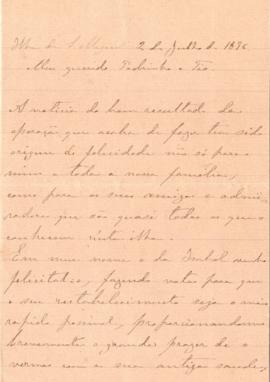 Ilha de S. Miguel 2 de Julho de 1896
Meu querido Padrinho e Tio
A noticia do bom resultado da
operação que acaba de fazer tem sido
origem de felicidade não só para
mim e toda a nossa familia,
como para os seus amigos e admi-
radores que são quasi todos os que o
conhecem n'esta ilha.
Em meu nome e da Isabel venho
felicital-o, fazendo votos para que
o seu restabelecimento seja o mais
rapido possivel, proporcionando-nos
brevemente o grande prazer de o
vermos com a sua antiga saude,